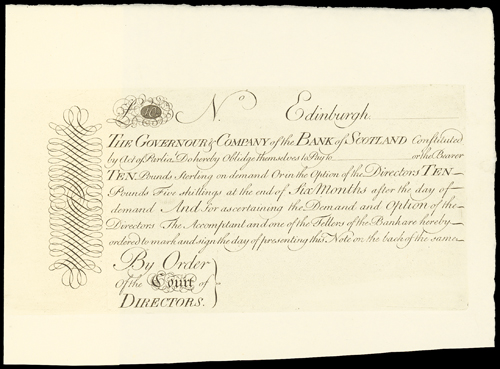 £ 10 No. Edinburgh
THE GOVERNOUR & COMPANY of the BANK of SCOTLAND Constituted
by Act of Parlia. Do hereby Oblidge themselves to Pay to or the Bearer
TEN Pounds Sterling on demand Or in the Option of the Directors TEN
Pounds Five shillings at the end of Six Months after the day of
demand And for ascertaining the Demand and Option of the
Directors The Accomptant and one of the Tellers of the Bank are hereby
ordered to mark and sign the day of presenting this Note on the back of the same
By Order
Of the Court of
DIRECTORS.